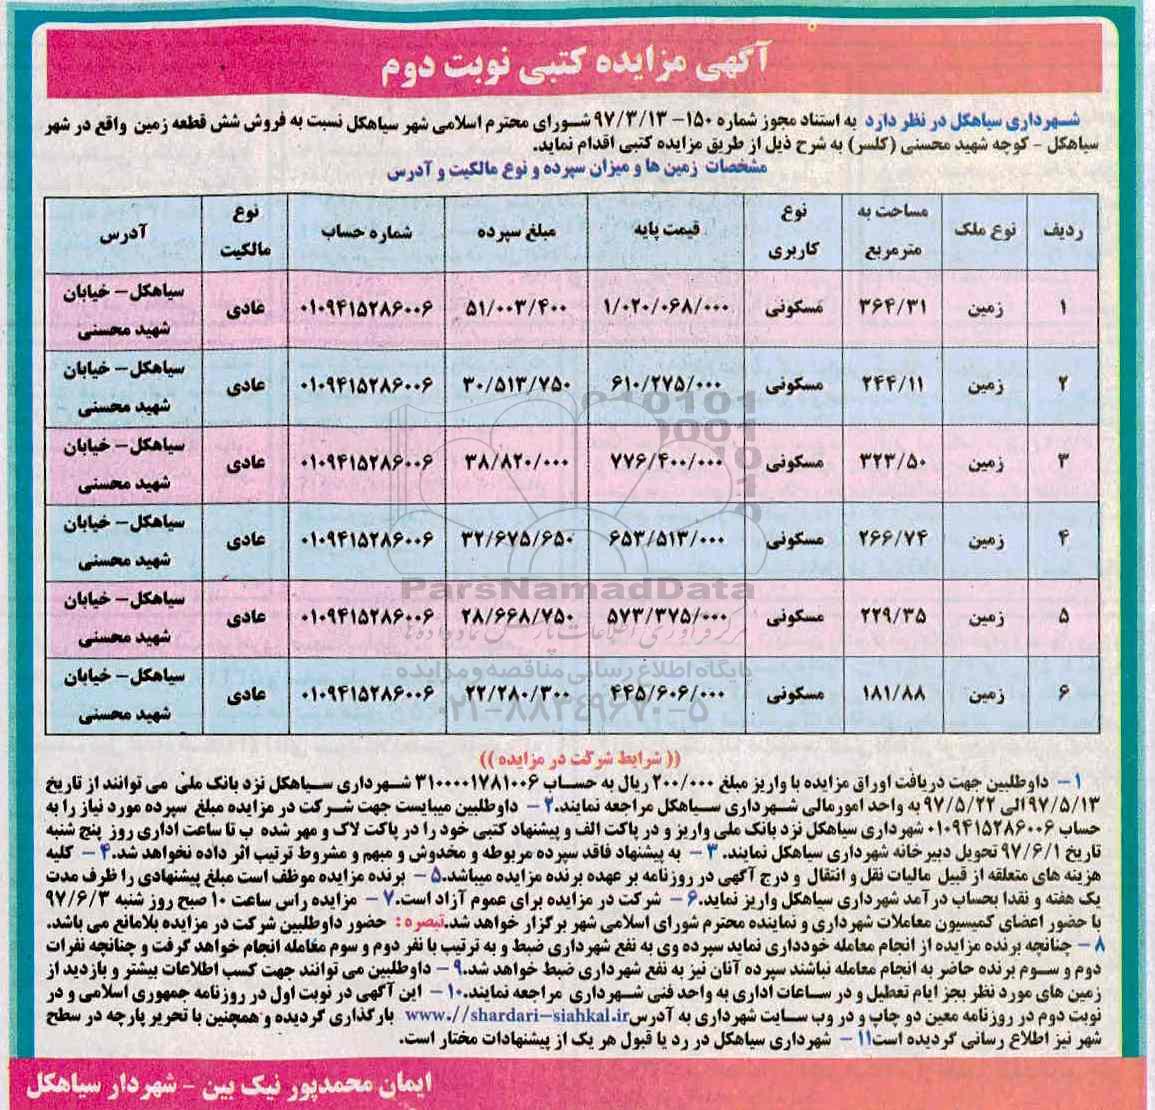 آگهی مزایده کتبی نوبت دوم
شهرداری سیاهکل در نظر دارد به استناد مجوز شماره ۱۵۰- ۹۷/۳/۱۳ شورای محترم اسلامی شهر سیاهکل نسبت به فروش شش قطعه زمین واقع در شهر
سیاهکل - کوچه شهید محسنی (کلسر) به شرح ذیل از طریق مزایده کتبی اقدام نماید.
مشخصات زمین ها و میزان سپرده و نوع مالکیت و آدرس
ردیف نوع ملک مساحت به مترمربع نوع کاربری قیمت پایه مبلغ سپرده شماره حساب نوع مالکیت آدرس
۱ زمین ۳۶۴/۳۱ مسکونی ۱/۰۲۰/۰۶۸/۰۰۰ ۵۱/۰۰۳/۴۰۰ ۰۱۰۹۴۱۵۲۸۶۰۰۶ عادی سیاهکل- خیابان شهید محسنی
۲ زمین ۲۴۴/۱۱ مسکونی ۶۱۰/۲۷۵/۰۰۰ ۳۰/۵۱۳/۷۵۰ ۰۱۰۹۴۱۵۲۸۶۰۰۶ عادی سیاهکل- خیابان شهید محسنی
۳ زمین ۳۲۳/۵۰ مسکونی ۷۷۶/۴۰۰/۰۰۰ ۳۸/۸۲۰/۰۰۰ ۰۱۰۹۴۱۵۲۸۶۰۰۶ عادی سیاهکل- خیابان شهید محسنی
۴ زمین ۲۶۶/۷۴ مسکونی ۶۵۳/۵۱۳/۰۰۰ ۳۲/۶۷۵/۶۵۰ ۰۱۰۹۴۱۵۲۸۶۰۰۶ عادی سیاهکل- خیابان شهید محسنی
۵ زمین ۲۲۹/۳۵ مسکونی ۵۷۳/۳۷۵/۰۰۰ ۲۸/۶۶۸/۷۵۰ ۰۱۰۹۴۱۵۲۸۶۰۰۶ عادی سیاهکل- خیابان شهید محسنی
۶ زمین ۱۸۱/۸۸ مسکونی ۴۴۵/۶۰۶/۰۰۰ ۲۲/۲۸۰/۳۰۰ ۰۱۰۹۴۱۵۲۸۶۰۰۶ عادی سیاهکل- خیابان شهید محسنی
ParsNamadData
پایگاه اطلاع رسانی مناقصه و مزایده
۰۲۱-۸۸۳۴۹۶۷۰-۵
(( شرایط شرکت در مزایده ))
۱- داوطلبین جهت دریافت اوراق مزایده با واریز مبلغ ۲۰۰/۰۰۰ ریال به حساب ۳۱۰۰۰۰۱۷۸۱۰۰۶ شهرداری سیاهکل نزد بانک ملی می توانند از تاریخ
۹۷/۵/۱۳ الی ۹۷/۵/۲۲ به واحد امورمالی شهرداری سیاهکل مراجعه نمایند.۲- داوطلبین میبایست جهت شرکت در مزایده مبلغ سپرده مورد نیاز را به
حساب ۰۱۰۹۴۱۵۲۸۶۰۰۶ شهرداری سیاهکل نزد بانک ملی واریز و در پاکت الف و پیشنهاد کتبی خود را در پاکت لاک و مهر شده ب تا ساعت اداری روز پنج شنبه
تاریخ ۹۷/۶/۱ تحویل دبیرخانه شهرداری سیاهکل نمایند. ۳- به پیشنهاد فاقد سپرده مربوطه و مخدوش و مبهم و مشروط ترتیب اثر داده نخواهد شد.۴- کلیه
هزینه های متعلقه از قبیل مالیات نقل و انتقال و درج آگهی در روزنامه بر عهده برنده مزایده میباشد.۵- برنده مزایده موظف است مبلغ پیشنهادی را ظرف مدت
یک هفته و نقدا بحساب درآمد شهرداری سیاهکل واریز نماید.۶- شرکت در مزایده برای عموم آزاد است.۷- مزایده راس ساعت ۱۰ صبح روز شنبه ۹۷/۶/۳
با حضور اعضای کمیسیون معاملات شهرداری و نماینده محترم شورای اسلامی شهر برگزار خواهد شد.تبصره: حضور داوطلبین شرکت در مزایده بلامانع می باشد.
۸- چنانچه برنده مزایده از انجام معامله خودداری نماید سپرده وی به نفع شهرداری ضبط و به ترتیب با نفر دوم و سوم معامله انجام خواهد گرفت و چنانچه نفرات
دوم و سوم برنده حاضر به انجام معامله نباشند سپرده آنان نیز به نفع شهرداری ضبط خواهد شد.۹- داوطلبین می توانند جهت کسب اطلاعات بیشتر و بازدید از
زمین های مورد نظر بجز ایام تعطیل و در ساعات اداری به واحد فنی شهرداری مراجعه نمایند.۱۰- این آگهی در نوبت اول در روزنامه جمهوری اسلامی و در
نوبت دوم در روزنامه معین دو چاپ و در وب سایت شهرداری به آدرس www.//shardari-siahkal.ir بارگذاری گردیده و همچنین با تحریر پارچه در سطح
شهر نیز اطلاع رسانی گردیده است۱۱- شهرداری سیاهکل در رد یا قبول هر یک از پیشنهادات مختار است.
ایمان محمدپور نیک بین - شهردار سیاهکل